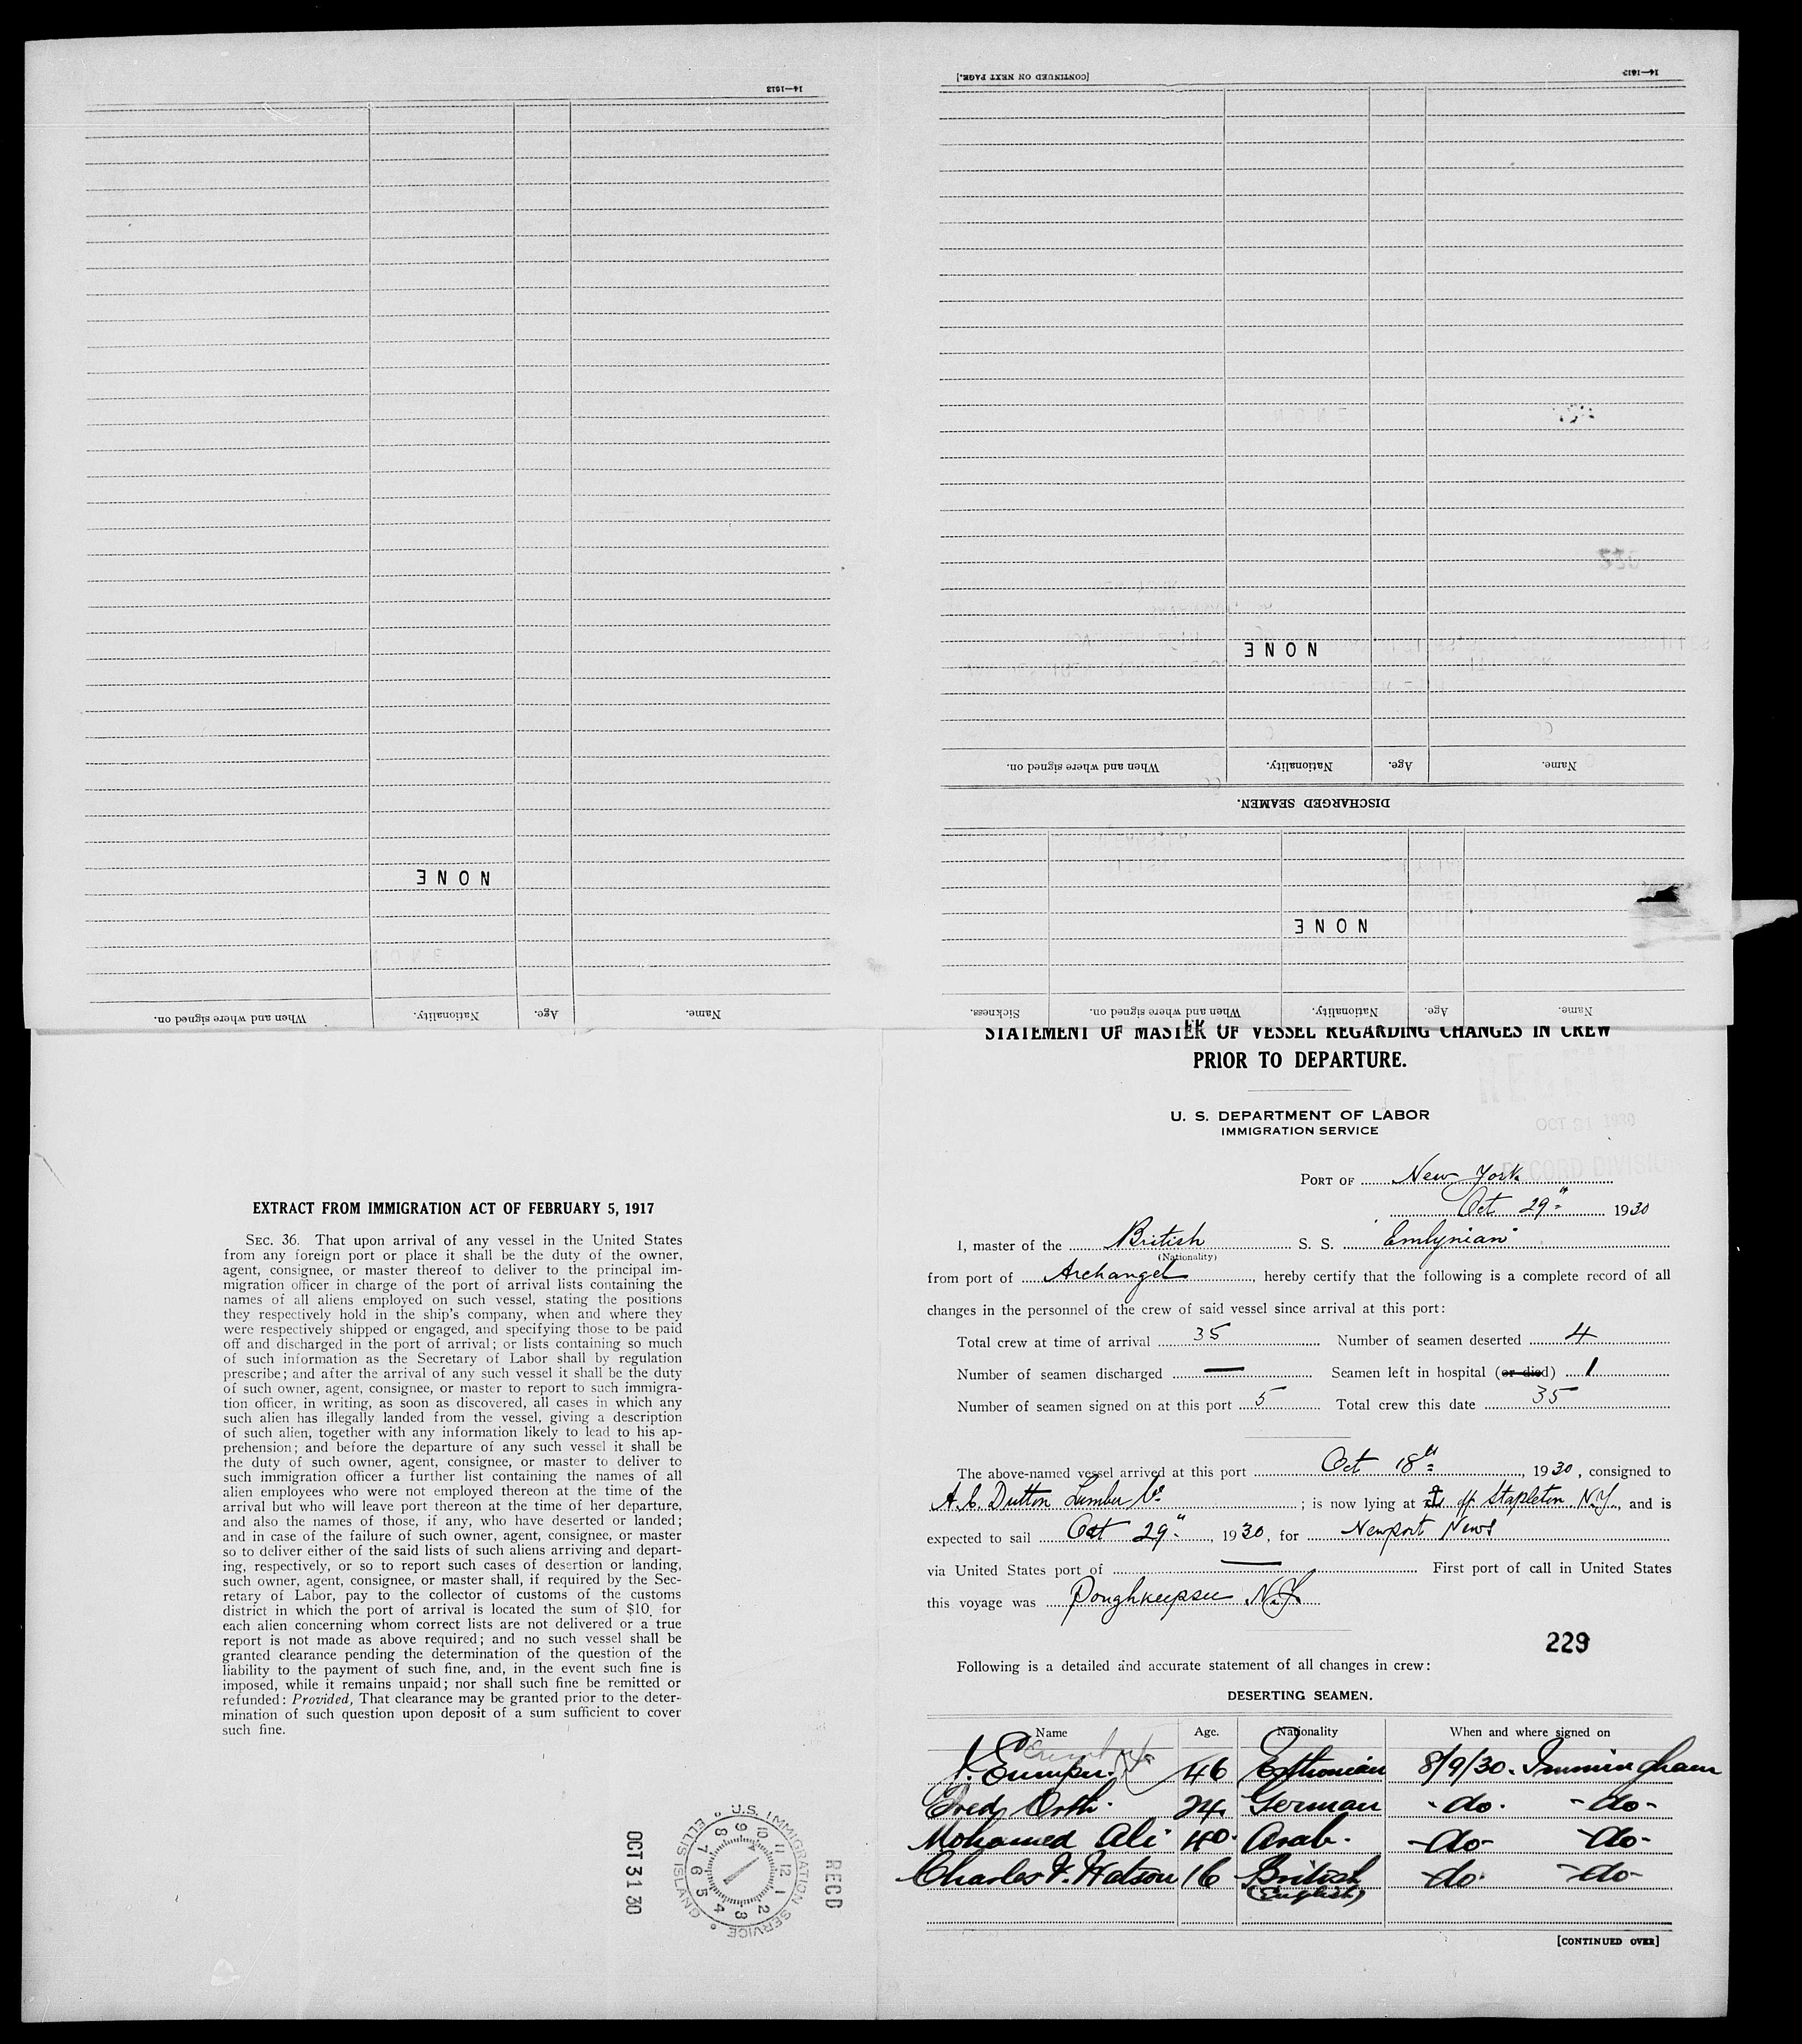 14—1613
[CONTINUED ON NEXT PAGE.]
14—1613
NONE
When and where signed on. Nationality. Age. Name.
DISCHARGED SEAMEN.
NONE
NONE
Name. Age. Nationality. When and where signed on.
Name. Age. Nationality. When and where signed on. Sickness.
STATEMENT OF MASTER OF VESSEL REGARDING CHANGES IN CREW
PRIOR TO DEPARTURE.
U. S. DEPARTMENT OF LABOR
IMMIGRATION SERVICE
OCT 31 1930
RECORD DIVISION
PORT OF New York
Oct 29" 1930
I, master of the British S. S. Emlynian
(Nationality)
from port of Archangel, hereby certify that the following is a complete record of all
changes in the personnel of the crew of said vessel since arrival at this port:
Total crew at time of arrival 35 Number of seamen deserted 4
Number of seamen discharged — Seamen left in hospital (or died) 1
Number of seamen signed on at this port 5 Total crew this date 35
The above-named vessel arrived at this port Oct 18th, 1930, consigned to
A. C. Dutton Lumber Co; is now lying at off Stapleton N.Y., and is
expected to sail Oct 29", 1930, for Newport News
via United States port of — First port of call in United States
this voyage was Poughkeepsie N.Y.
229
Following is a detailed and accurate statement of all changes in crew:
DESERTING SEAMEN.
Name Age. Nationality When and where signed on
J. 46 Esthonian 8/9/30. Immingham
Fred Orth. 24. German -do- -do-
Mohamed Ali 40. Arab. -do- -do-
Charles Watson 16 British -do- -do-
(English)
[CONTINUED OVER]
EXTRACT FROM IMMIGRATION ACT OF FEBRUARY 5, 1917
SEC. 36. That upon arrival of any vessel in the United States
from any foreign port or place it shall be the duty of the owner,
agent, consignee, or master thereof to deliver to the principal im-
migration officer in charge of the port of arrival lists containing the
names of all aliens employed on such vessel, stating the positions
they respectively hold in the ship's company, when and where they
were respectively shipped or engaged, and specifying those to be paid
off and discharged in the port of arrival; or lists containing so much
of such information as the Secretary of Labor shall by regulation
prescribe; and after the arrival of any such vessel it shall be the duty
of such owner, agent, consignee, or master to report to such immigra-
tion officer, in writing, as soon as discovered, all cases in which any
such alien has illegally landed from the vessel, giving a description
of such alien, together with any information likely to lead to his ap-
prehension; and before the departure of any such vessel it shall be
the duty of such owner, agent, consignee, or master to deliver to
such immigration officer a further list containing the names of all
alien employees who were not employed thereon at the time of the
arrival but who will leave port thereon at the time of her departure,
and also the names of those, if any, who have deserted or landed;
and in case of the failure of such owner, agent, consignee, or master
so to deliver either of the said lists of such aliens arriving and depart-
ing, respectively, or so to report such cases of desertion or landing,
such owner, agent, consignee, or master shall, if required by the Sec-
retary of Labor, pay to the collector of customs of the customs
district in which the port of arrival is located the sum of $10 for
each alien concerning whom correct lists are not delivered or a true
report is not made as above required; and no such vessel shall be
granted clearance pending the determination of the question of the
liability to the payment of such fine, and, in the event such fine is
imposed, while it remains unpaid; nor shall such fine be remitted or
refunded: Provided, That clearance may be granted prior to the deter-
mination of such question upon deposit of a sum sufficient to cover
such fine.
RECD
U.S. IMMIGRATION SERVICE ELLIS ISLAND
12 1 2 3 4 5 6 7 8 9 10 11
OCT 31 30